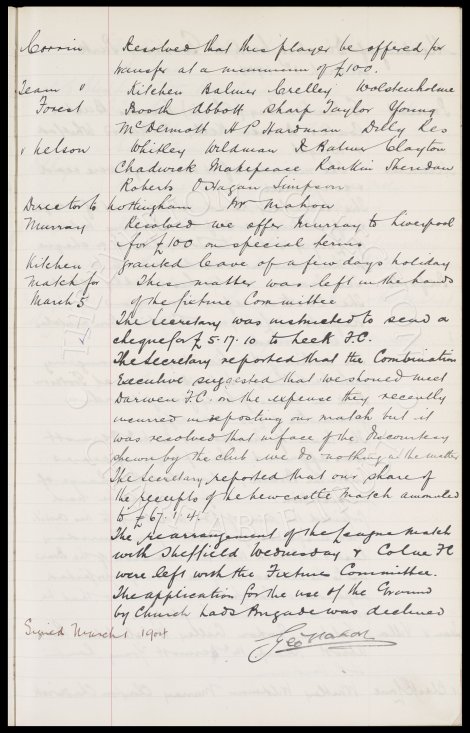 Corrin Resolved that this player be offered for
transfer at a minimum of £100.
Team v Kitchen Balmer Crelley Wolstenholme
Forest Booth Abbott Sharp Taylor Young
McDermott H P Hardman Dilly Res
v Nelson Whitley Wildman R Balmer Clayton
Chadwick Makepeace Rankin Sheridan
Roberts O'Hagan Simpson
Director to Nottingham Mr Mahon
Murray Resolved we offer Murray to Liverpool
for £100 on special terms
Kitchen granted leave of a few days holiday
Match for This matter was left in the hands
March 5 of the fixture Committee
The Secretary was instructed to send a
cheque for £5-17-10 to Leek F.C.
The Secretary reported that the Combination
Executive suggested that we should meet
Darwen F.C. in the expense they recently
incurred in posting our match but it
was resolved that in face of the discourtesy
shewn by the club we do nothing in the matter
The Secretary reported that our share of
the receipts of the Newcastle Match amounted
to £67.1.4.
The rearrangement of the League match
with Sheffield Wednesday & Colne FC
were left with the Fixture Committee.
The application for the use of the Ground
by Church Lads Brigade was declined
Signed March 1 1904
Geo Mahon